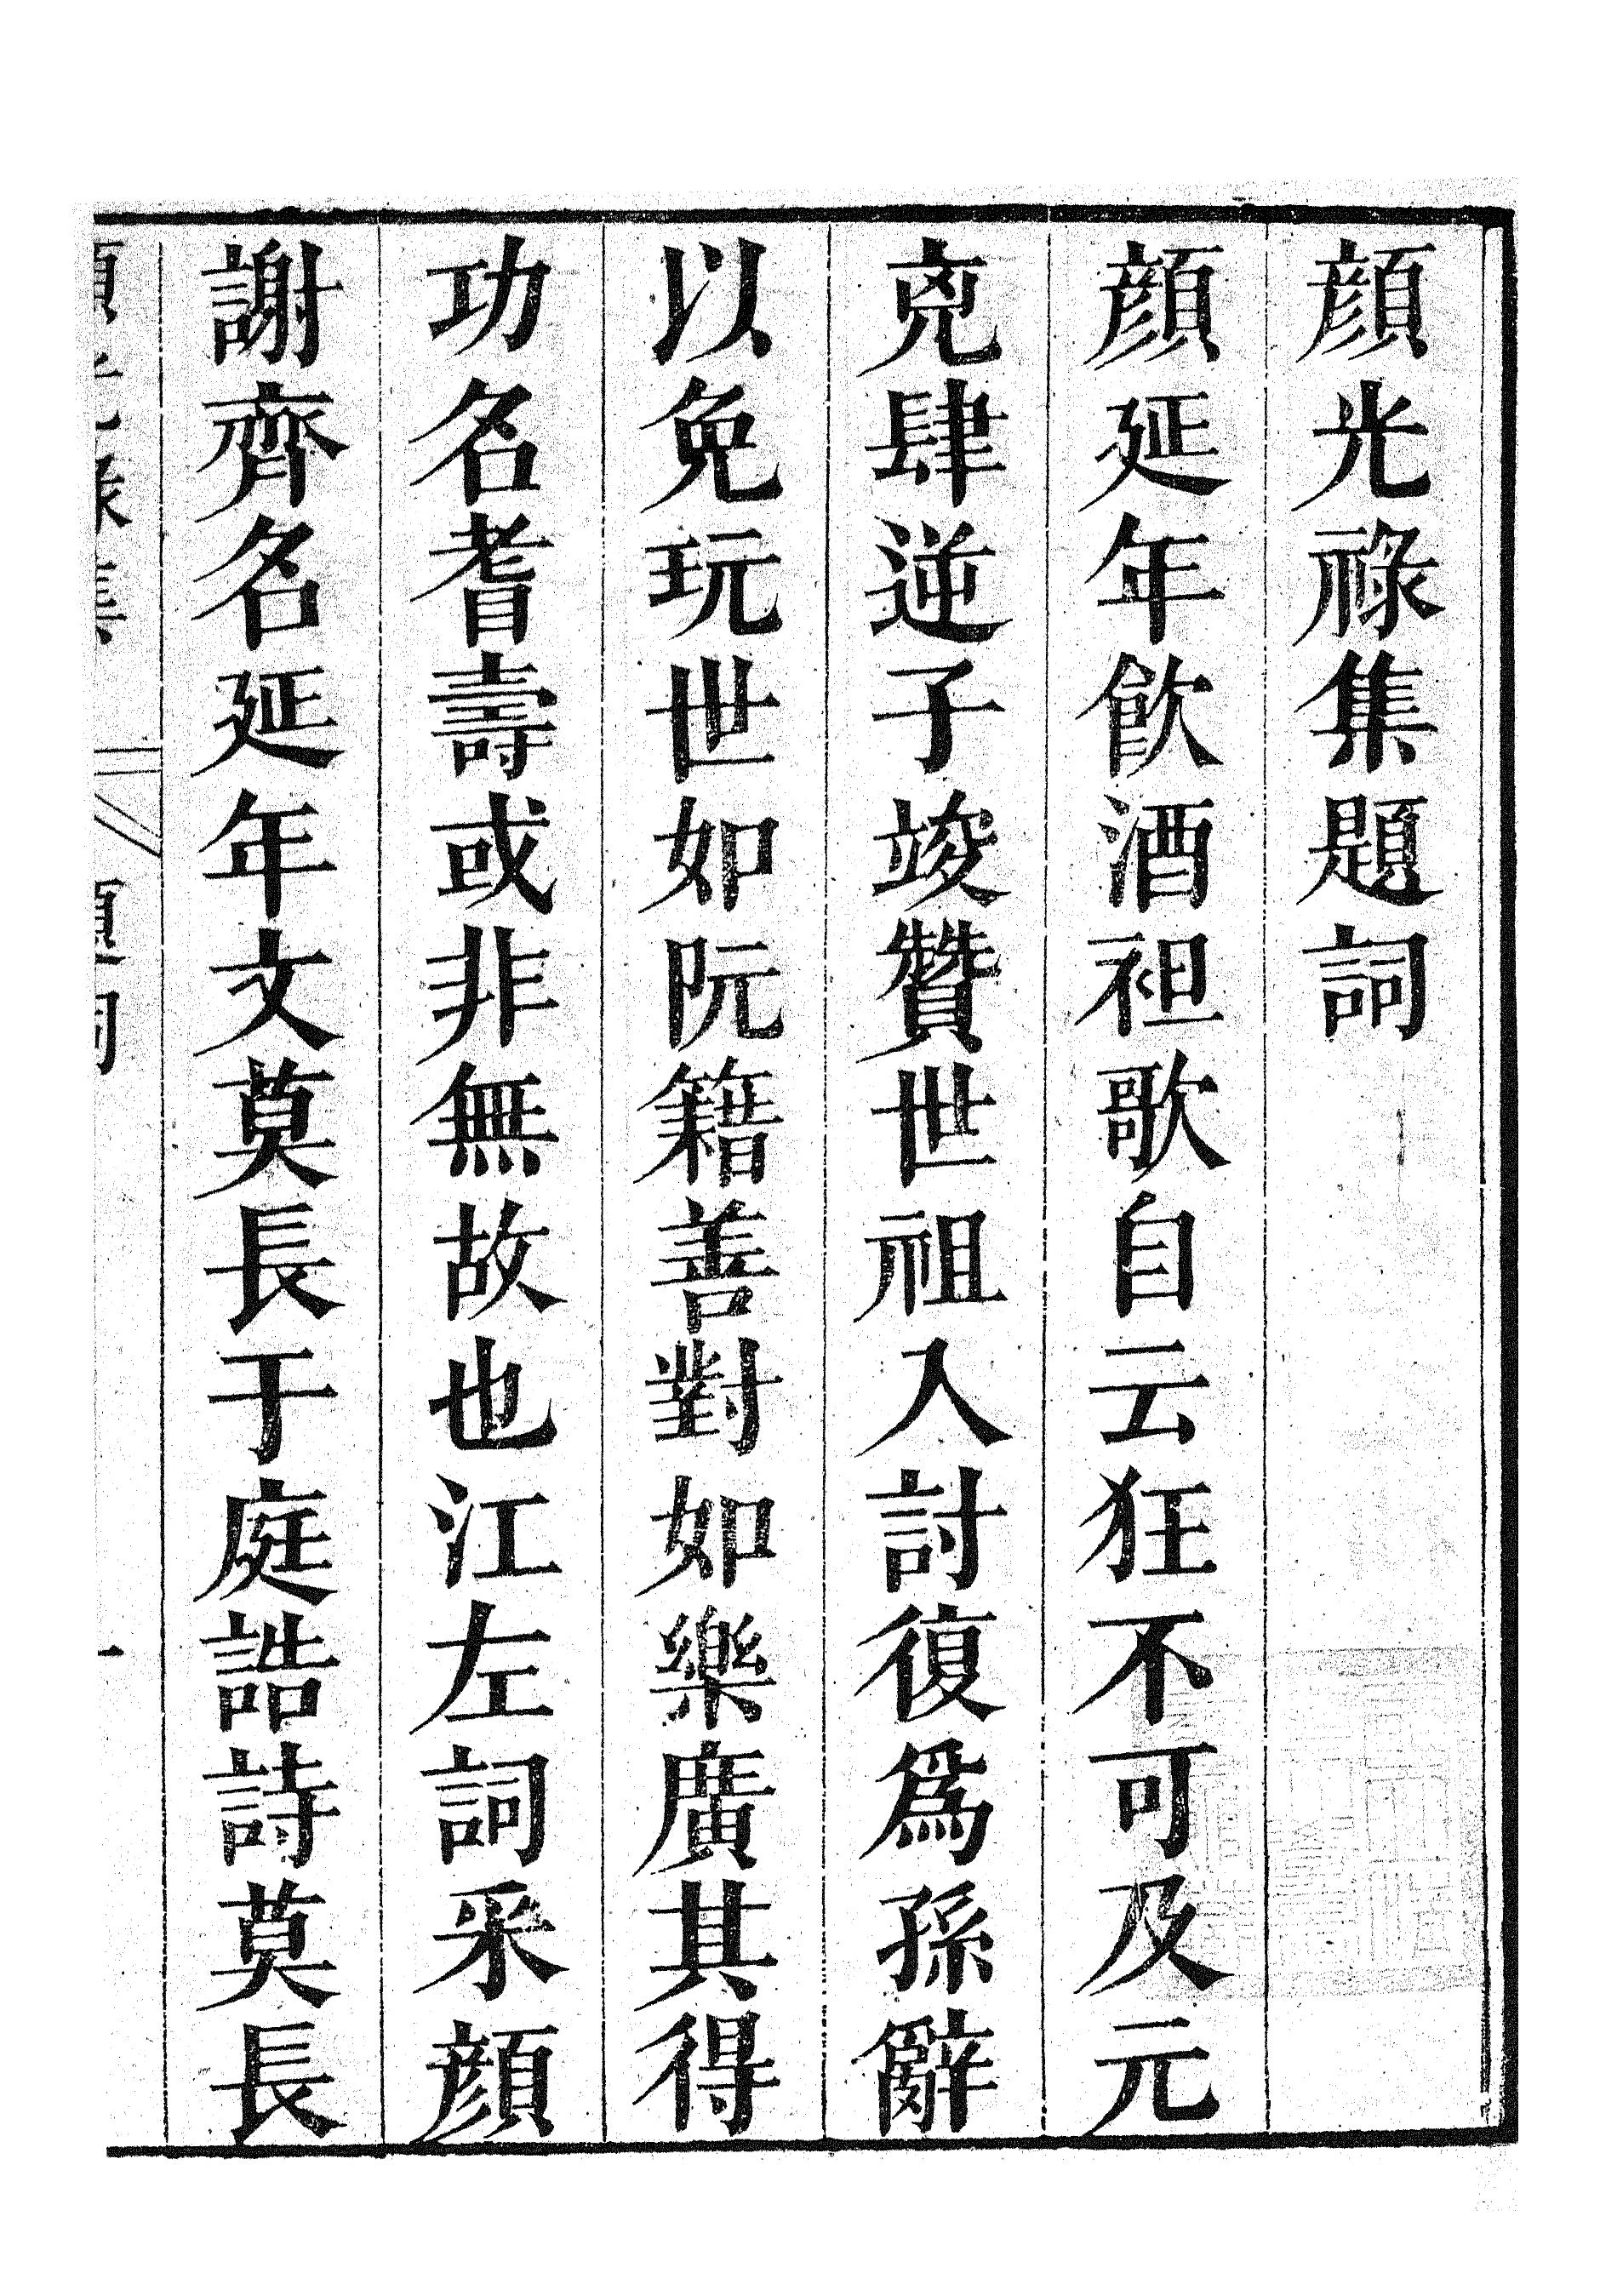 顔光祿集題詞
顔延年飮酒袒歌自云狂不可及元
兇肆逆子竣贊世祖入討復爲孫辭
以免玩世如阮籍善對如樂廣其得
功名耆壽或非無故也江左詞采顔
謝齊名延年文莫長于庭誥詩莫長